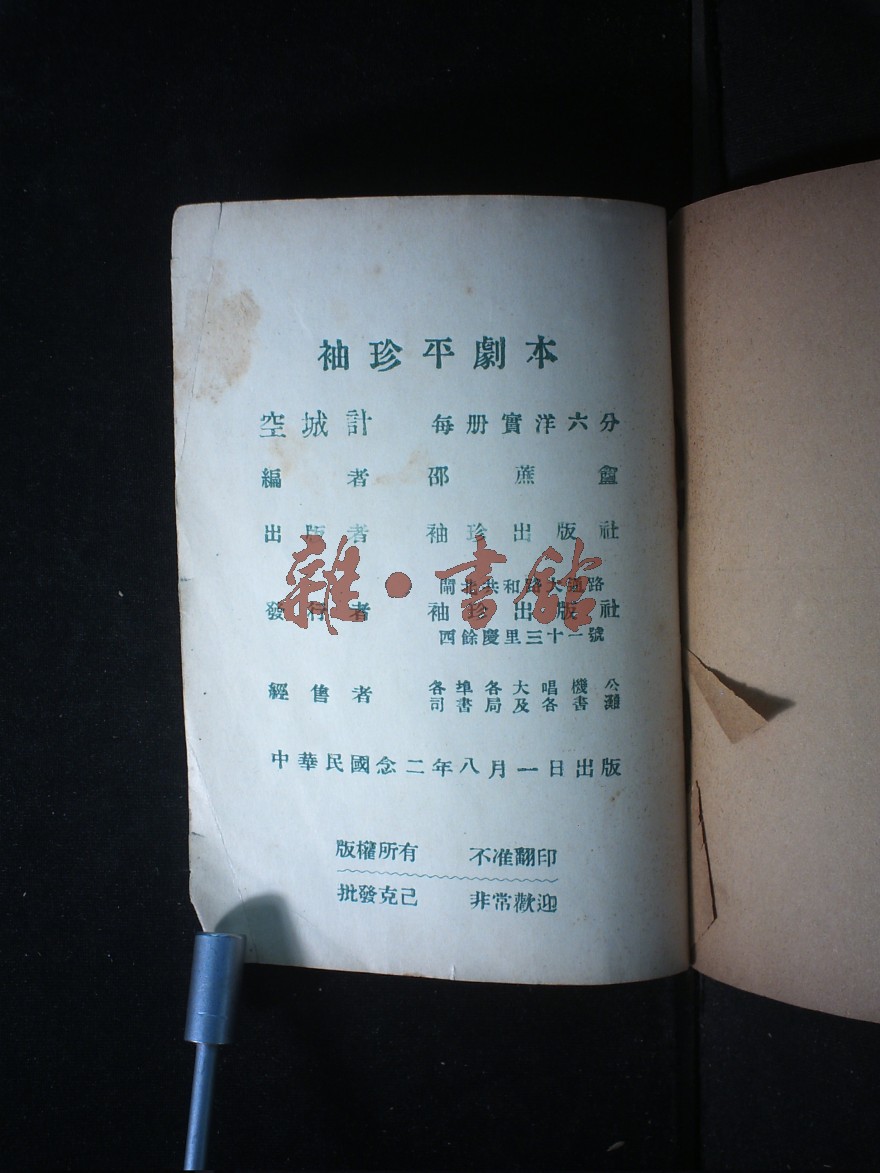 袖珍平劇本
空城計 每册實洋六分
編者 邵蕉龕
出版者 袖珍出版社
閘北共和路大通路
發行者 袖珍出版社
西餘慶里三十一號
經售者 各埠各大唱機公
司書局及各書灘
中華民國念二年八月一日出版
版權所有 不准翻印
批發克己 非常歡迎
雜·書館